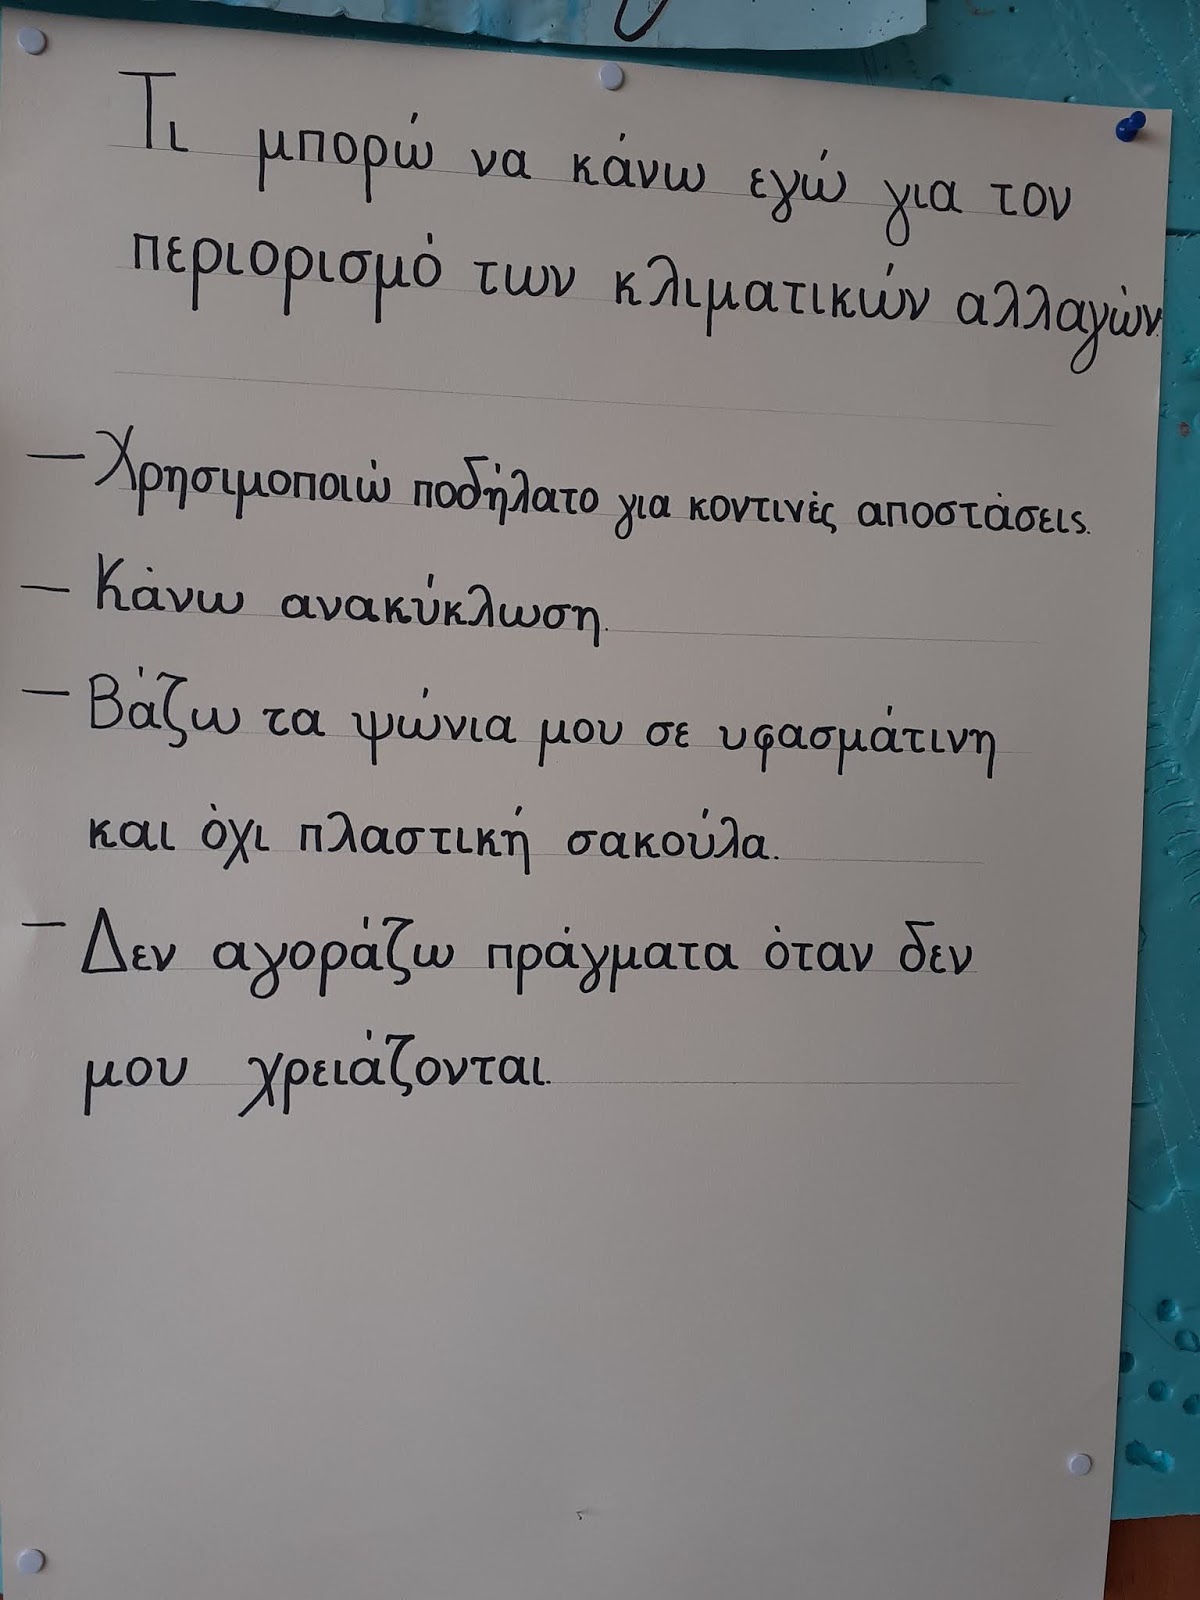 Τι μπορώ να κάνω εγώ για τον
περιορισμό των κλιματικών αλλαγών.
— Χρησιμοποιώ ποδήλατο για κοντινές αποστάσεις.
— Κάνω ανακύκλωση.
— Βάζω τα ψώνια μου σε υφασμάτινη
και όχι πλαστική σακούλα.
— Δεν αγοράζω πράγματα όταν δεν
μου χρειάζονται.